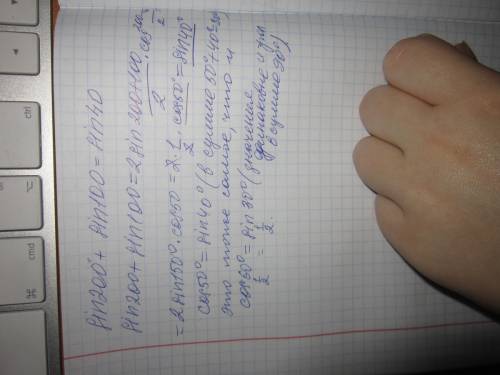 sin200° + sin100 = sin40
sin200 + sin100 = 2 sin 200+100/2 · cos
= 2 sin150° · cos50 = 2 · 1/2 · cos50° = sin40°
cos50° = sin40° (в сумме 50°+40°=90
это тоже самое, что и
cos60° = sin30° (значения
1/2 = 1/2 одинаковые и при
в сумме 90°)
ctrl
cmd
⌘